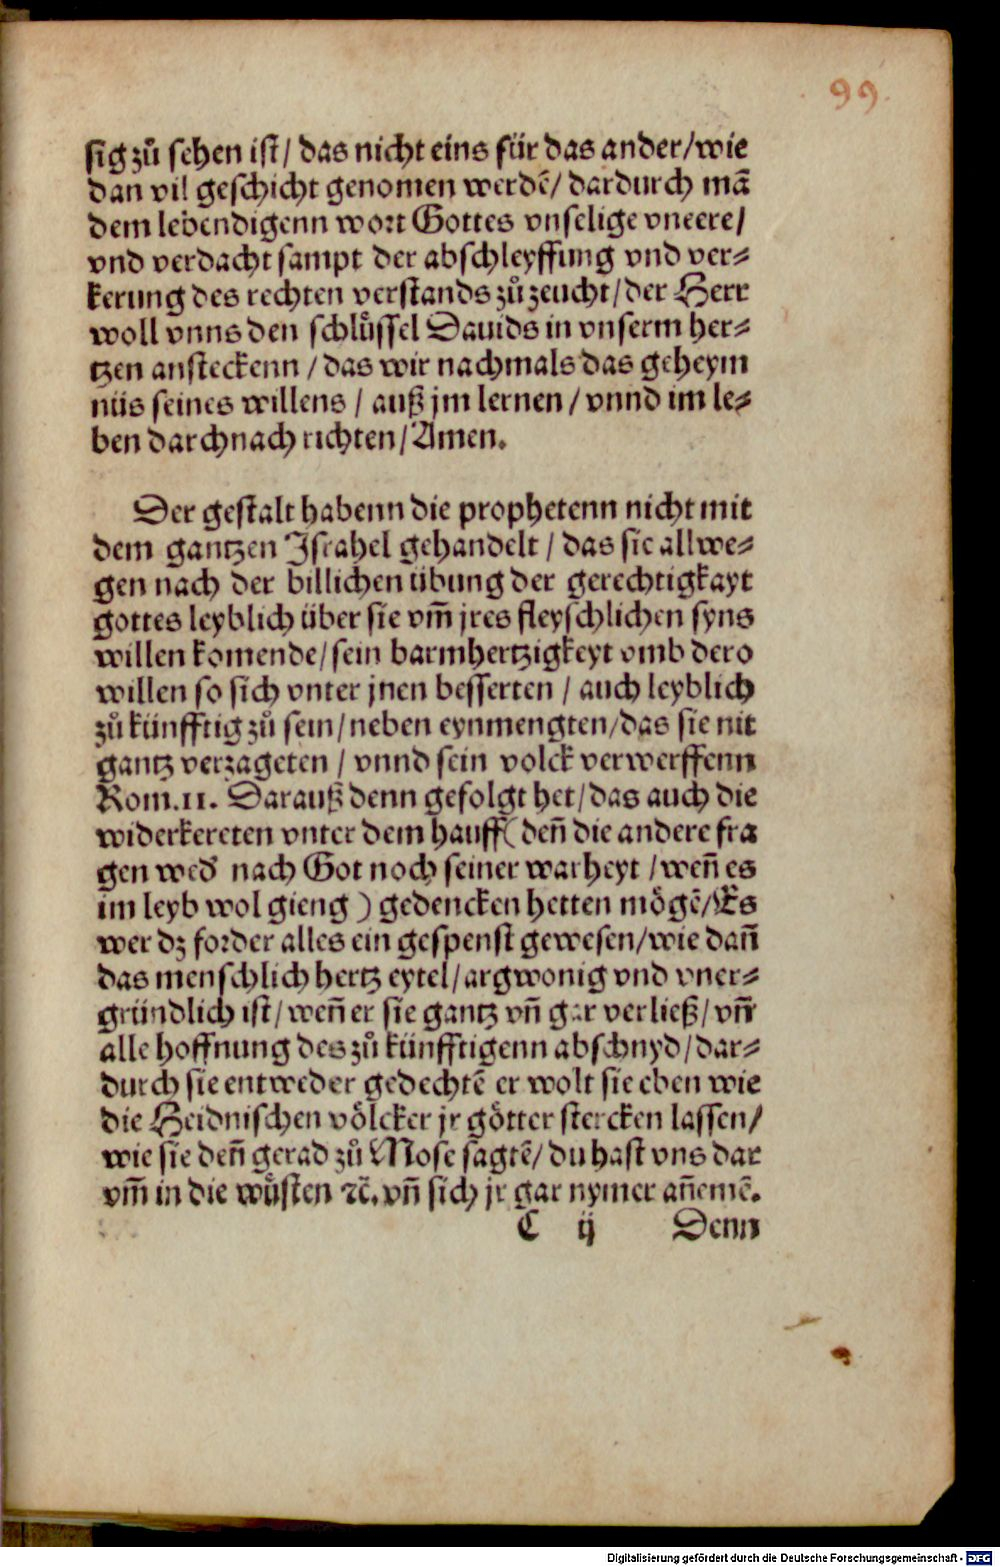 99.
sig zů sehen ist / das nicht eins für das ander / wie
dan vil geschicht genomen werdē / dardurch mā
dem lebendigenn wort Gottes vnselige vneere /
vnd verdacht sampt der abschleyffung vnd ver⸗
kerung des rechten verstands zů zeucht / der Herr
woll vnns den schlůssel Dauids in vnserm her⸗
tzen ansteckenn / das wir nachmals das geheym
nüs seines willens / auß jm lernen / vnnd im le⸗
ben darchnach richten / Amen.
Der gestalt habenn die prophetenn nicht mit
dem gantzen Israhel gehandelt / das sie allwe⸗
gen nach der billichen übung der gerechtigkayt
gottes leyblich über sie vm̄ jres fleyschlichen syns
willen komende / sein barmhertzigkeyt vmb dero
willen so sich vnter jnen besserten / auch leyblich
zů künfftig zů sein / neben eynmengten / das sie nit
gantz verzageten / vnnd sein volck verwerffenn
Rom.11. Darauß denn gefolgt het / das auch die
widerkereten vnter dem hauff (deñ die andere fra
gen wed' nach Got noch seiner warheyt / weñ es
im leyb wol gieng) gedencken hetten mögē / Es
wer dz forder alles ein gespenst gewesen / wie dañ
das menschlich hertz eytel / argwonig vnd vner⸗
gründlich ist / weñ er sie gantz vñ gar verließ / vñ
alle hoffnung des zů künfftigenn abschnyd / dar⸗
durch sie entweder gedechtē er wolt sie eben wie
die Heidnischen völcker jr götter stercken lassen /
wie sie deñ gerad zů Mose sagtē / du hast vns dar
vm̄ in die wůsten ꝛc̄. vñ sich jr gar nymer añemē.
C ij Denn
Digitalisierung gefördert durch die Deutsche Forschungsgemeinschaft - DFG